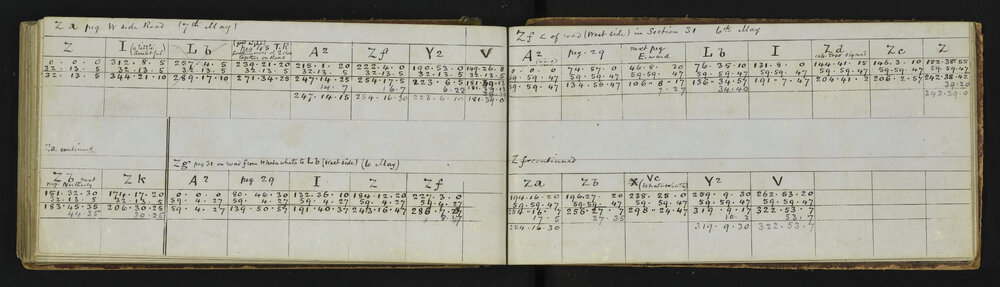 Za peg W side Road (7th May)
Z I Lb A2 Zf Y2 V
0. 0. 0 312. 8. 5 257. 4. 5 239. 21. 20 215. 1. 20 222. 4. 0 190. 53. 0 149. 26. 8
32. 13. 5 32. 13. 5 32. 13. 5 32. 13. 5 32. 13. 5 32. 13. 5 32. 13. 5 32. 13. 5
32. 13. 5 344. 21. 10 289. 17. 10 271. 34. 25 247. 14. 25 254. 17. 5 223. 6. 5
247. 14. 15 254. 16. 30 223. 6. 10 181. 39. 0
Za continued
Zg peg 31 on road from Whatawhata to Lb (West side) (6 May)
Zb next peg Northerly Zk A2 peg 29 I Z Zf
151. 32. 30 174. 17. 20 0. 0. 0 80. 46. 30 132. 36. 10 184. 12. 20 227. 3. 0
32. 13. 5 32. 13. 5 59. 4. 27 59. 4. 27 59. 4. 27 59. 4. 27 59. 4. 27
183. 45. 35 206. 30. 25 59. 4. 27 139. 50. 57 191. 40. 37 243. 16. 47
44. 35 30. 25
Zf < of road (West side) in Section 31 6th May
A2 peg 29 next peg E. ward Lb I Zd Zc Z
0. 0. 0 74. 57. 0 46. 8. 30 76. 35. 10 131. 8. 0 144. 41. 15 146. 3. 10 182. 38. 55
59. 59. 47 59. 59. 47 59. 59. 47 59. 59. 47 59. 59. 47 59. 59. 47 59. 59. 47 59. 59. 47
59. 59. 47 134. 56. 47 106. 8. 17 136. 34. 57 191. 7. 47 204. 41. 2 206. 2. 57 242. 38. 42
7. 27 34. 40 39. 20
242. 39. 0
Zf continued
Za Zb Vc (Whatawhata) Y2 V
194. 16. 20 196. 27. 238. 25. 0 259. 9. 30 262. 53. 20
59. 59. 47 59. 59. 47 59. 59. 47 59. 59. 47 59. 59. 47
254. 16. 7 256. 27. 7 298. 24. 47 319. 9. 17 322. 53. 7
17. 5 27. 35 10. 2 53. 7
254. 16. 30 319. 9. 30 322. 53. 7